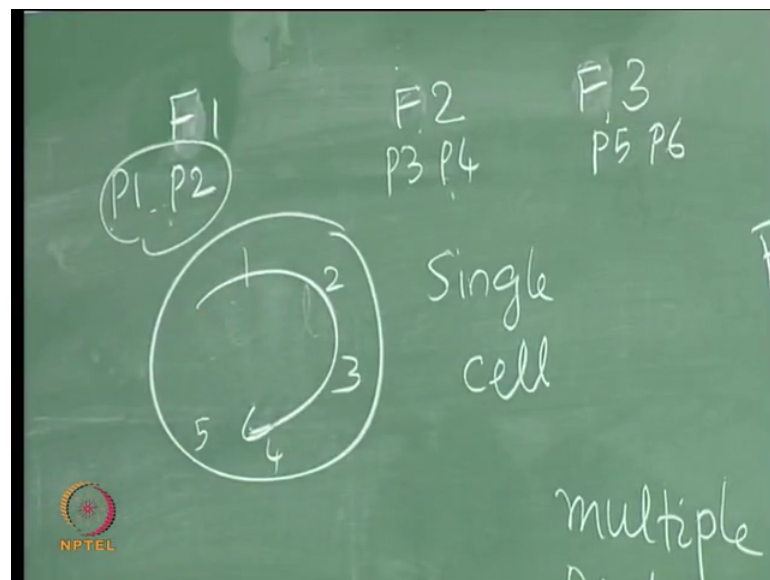 F1 F2 F3
P1 P2 P3 P4 P5 P6
1
2
Single
3
cell
5
4
multiple
NPTEL